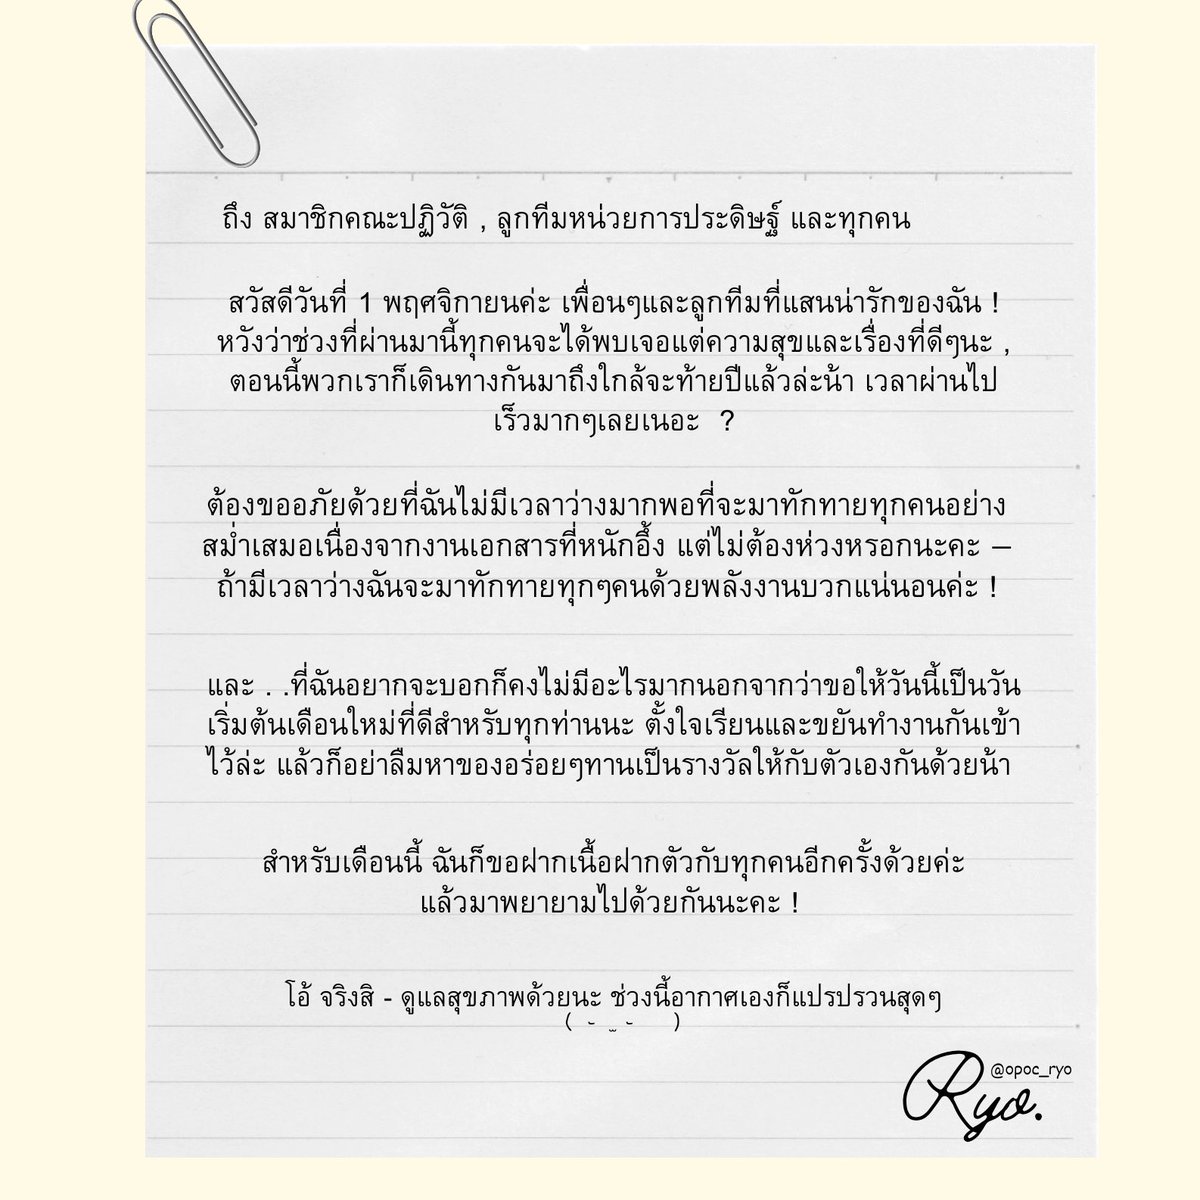 ถึง สมาชิกคณะปฏิวัติ , ลูกทีมหน่วยการประดิษฐ์ และทุกคน
สวัสดีวันที่ 1 พฤศจิกายนค่ะ เพื่อนๆและลูกทีมที่แสนน่ารักของฉัน !
หวังว่าช่วงที่ผ่านมานี้ทุกคนจะได้พบเจอแต่ความสุขและเรื่องที่ดีๆนะ ,
ตอนนี้พวกเราก็เดินทางกันมาถึงใกล้จะท้ายปีแล้วล่ะน้า เวลาผ่านไป
เร็วมากๆเลยเนอะ ?
ต้องขออภัยด้วยที่ฉันไม่มีเวลาว่างมากพอที่จะมาทักทายทุกคนอย่าง
สม่ำเสมอเนื่องจากงานเอกสารที่หนักอึ้ง แต่ไม่ต้องห่วงหรอกนะคะ –
ถ้ามีเวลาว่างฉันจะมาทักทายทุกๆคนด้วยพลังงานบวกแน่นอนค่ะ !
และ . .ที่ฉันอยากจะบอกก็คงไม่มีอะไรมากนอกจากว่าขอให้วันนี้เป็นวัน
เริ่มต้นเดือนใหม่ที่ดีสำหรับทุกท่านนะ ตั้งใจเรียนและขยันทำงานกันเข้า
ไว้ล่ะ แล้วก็อย่าลืมหาของอร่อยๆทานเป็นรางวัลให้กับตัวเองกันด้วยน้า
สำหรับเดือนนี้ ฉันก็ขอฝากเนื้อฝากตัวกับทุกคนอีกครั้งด้วยค่ะ
แล้วมาพยายามไปด้วยกันนะคะ !
โอ้ จริงสิ - ดูแลสุขภาพด้วยนะ ช่วงนี้อากาศเองก็แปรปรวนสุดๆ
( ˘ ͜ ˘ )
@opoc_ryo
Ryo.